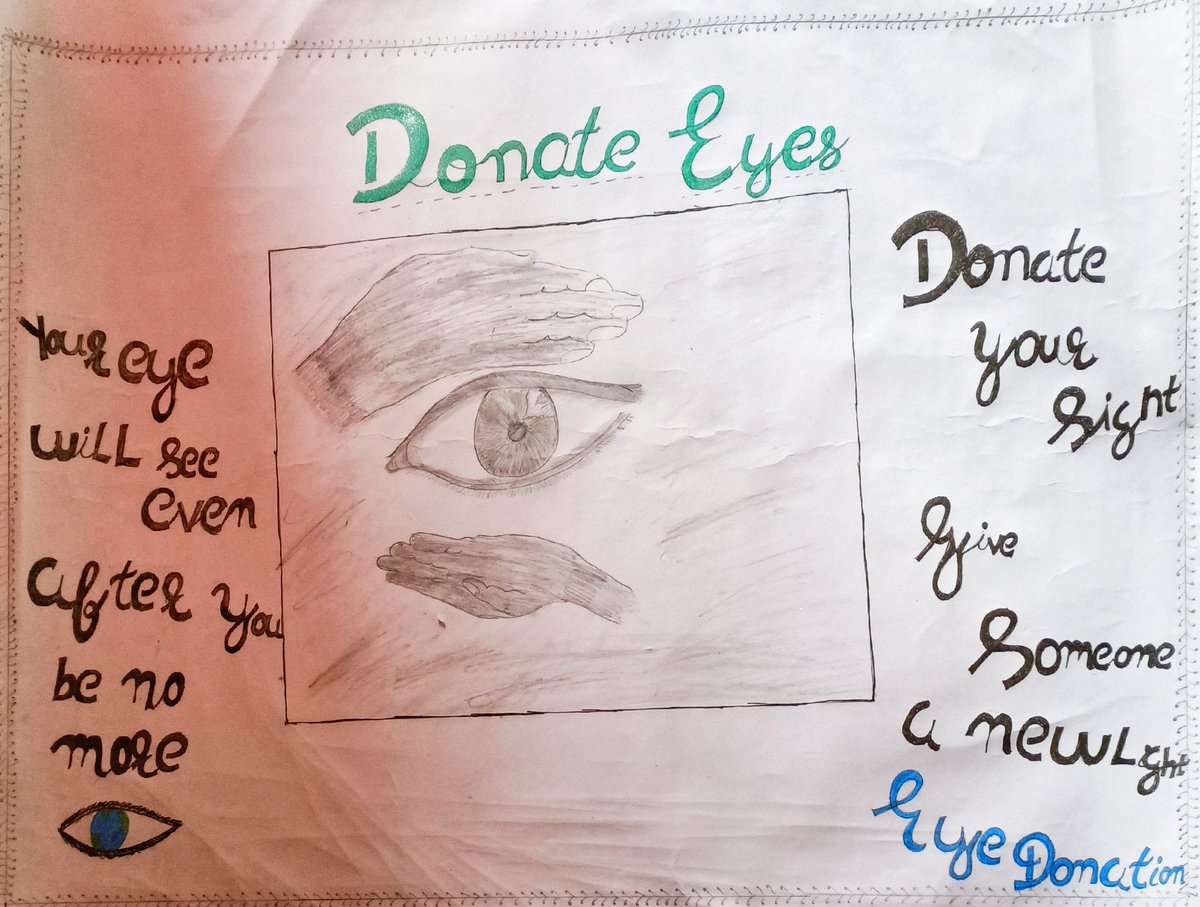 Donate Eyes
Your eye
will see
even
after you
be no
more
Donate
your
Sight
Give
Someone
a new Light
Eye Donation